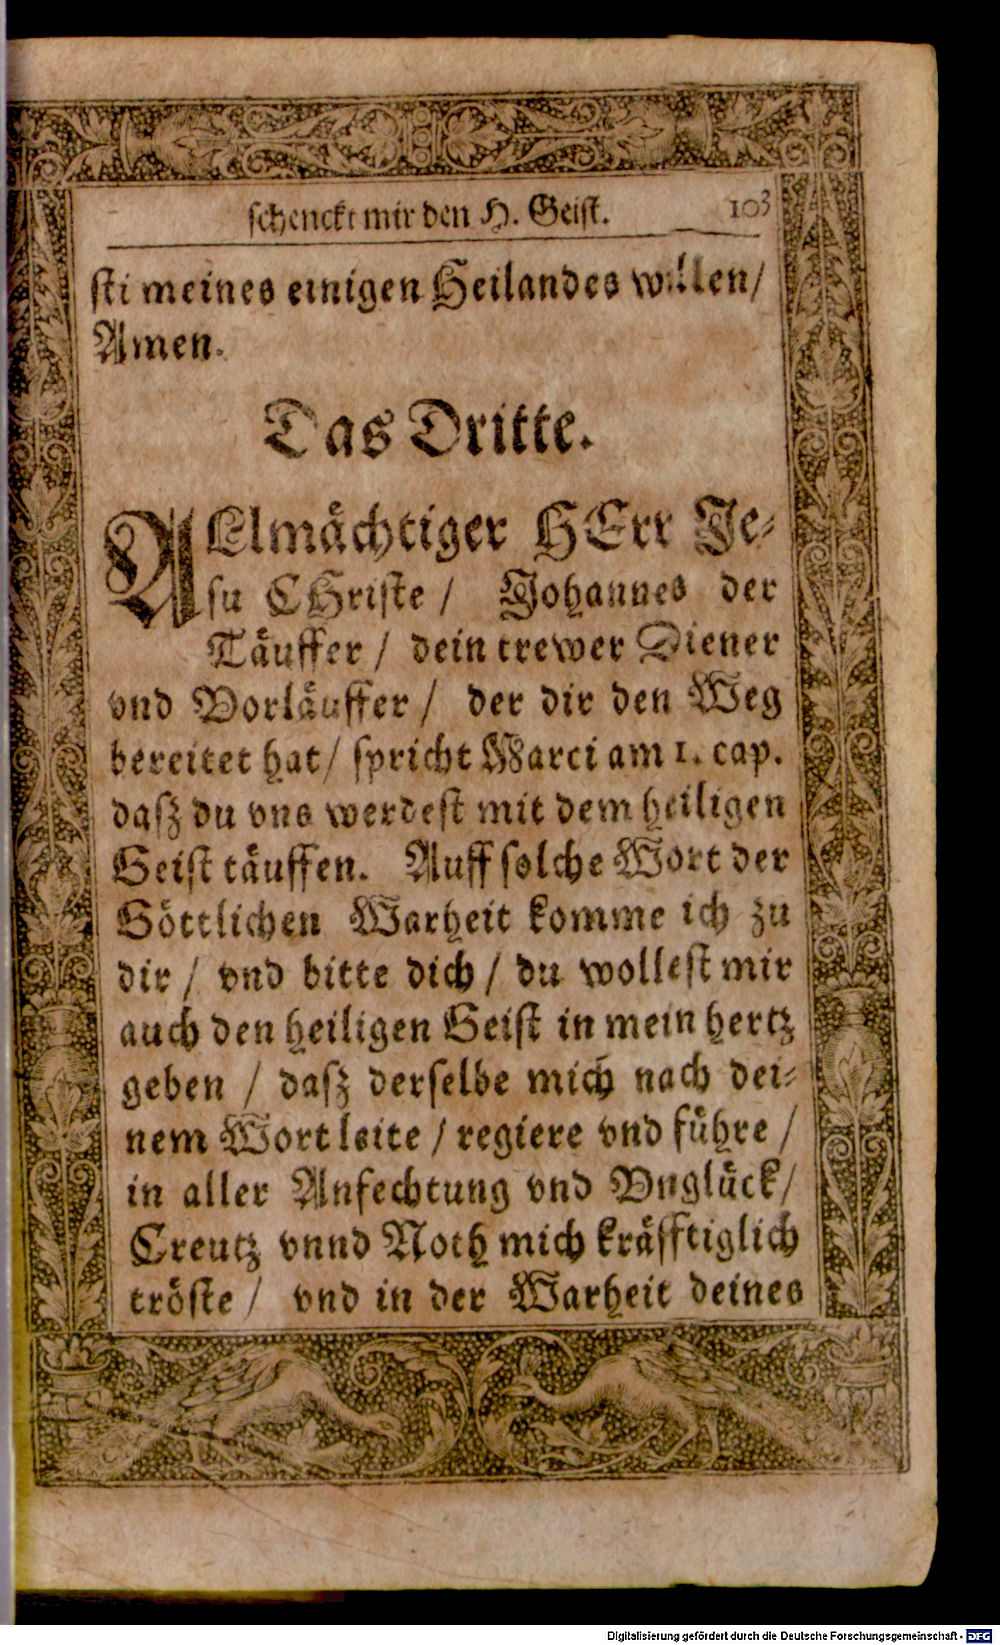 schenckt mir den H. Geist. 103
sti meines einigen Heilandes willen/
Amen.
Das Dritte.
ALlmächtiger HErr Je-
su CHriste / Johannes der
Täuffer / dein trewer Diener
vnd Vorläuffer / der dir den Weg
bereitet hat / spricht Marci am 1. cap.
dasz du vns werdest mit dem heiligen
Geist täuffen. Auff solche Wort der
Göttlichen Warheit komme ich zu
dir / vnd bitte dich / du wollest mir
auch den heiligen Geist in mein hertz
geben / dasz derselbe mich nach dei-
nem Wort leite / regiere vnd führe /
in aller Anfechtung vnd Vnglück /
Creutz vnnd Noth mich kräfftiglich
tröste / vnd in der Warheit deines
Digitalisierung gefördert durch die Deutsche Forschungsgemeinschaft - DFG